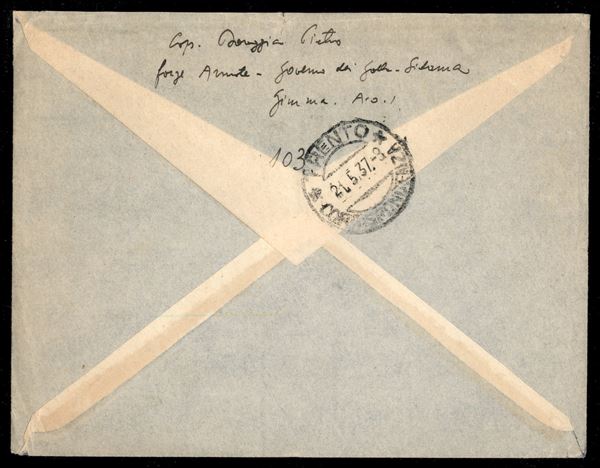 Cap. Pietro
Forze Armate - Governo dei Galla - Sidama
Gimma. A.O.I
103
TRENTO
21.5.37.-9